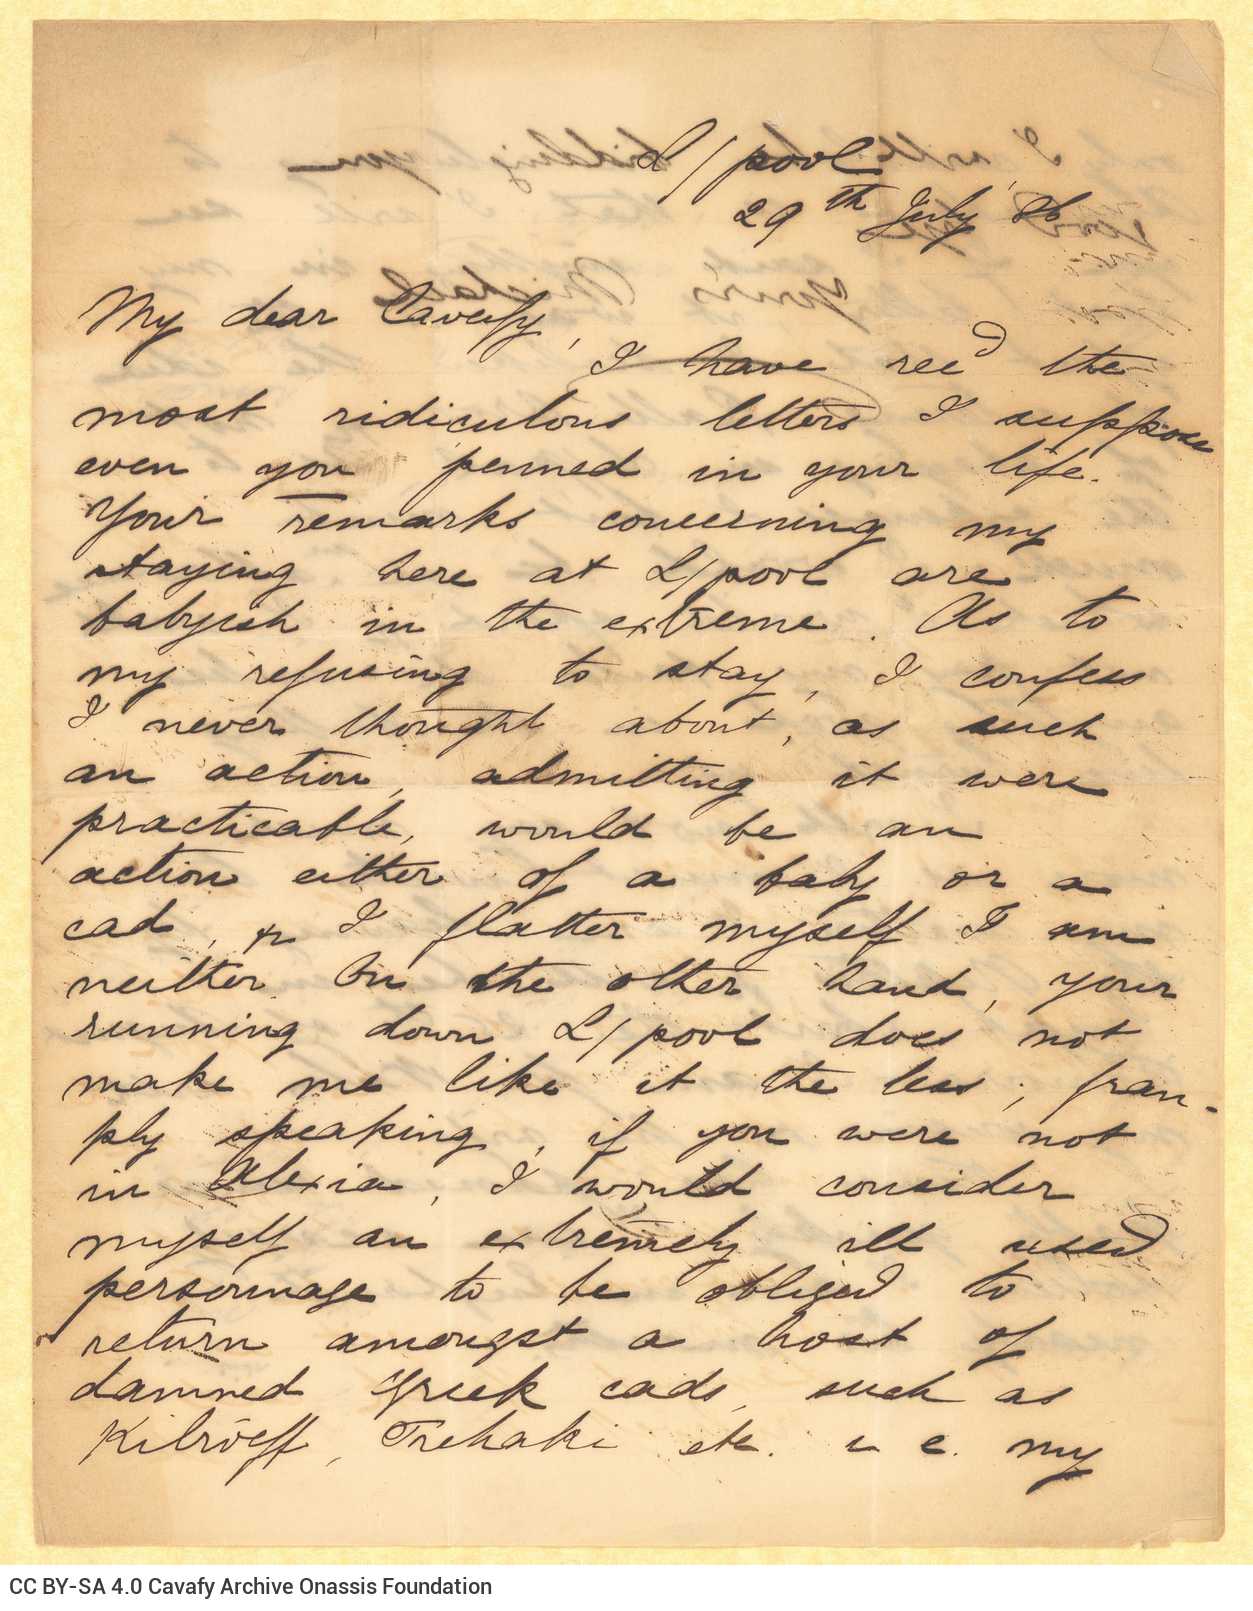 L/pool
29th July, 86
My dear Cavafy,
I have recd the
most ridiculous letters I suppose
even you penned in your life.
Your remarks concerning my
staying here at L/pool are
babyish in the extreme. As to
my refusing to stay, I confess
I never thought about, as such
an action, admitting it were
practicable, would be an
action either of a baby or a
cad, & I flatter myself I am
neither. On the other hand, your
running down L/pool does not
make me like it the less; fran-
ply speaking, if you were not
in Alexia, I would consider
myself an extremely ill used
personnage to be obliged to
return amongst a host of
damned Greek cads, such as
Kilroeff, etc. i e. my
CC BY-SA 4.0 Cavafy Archive Onassis Foundation